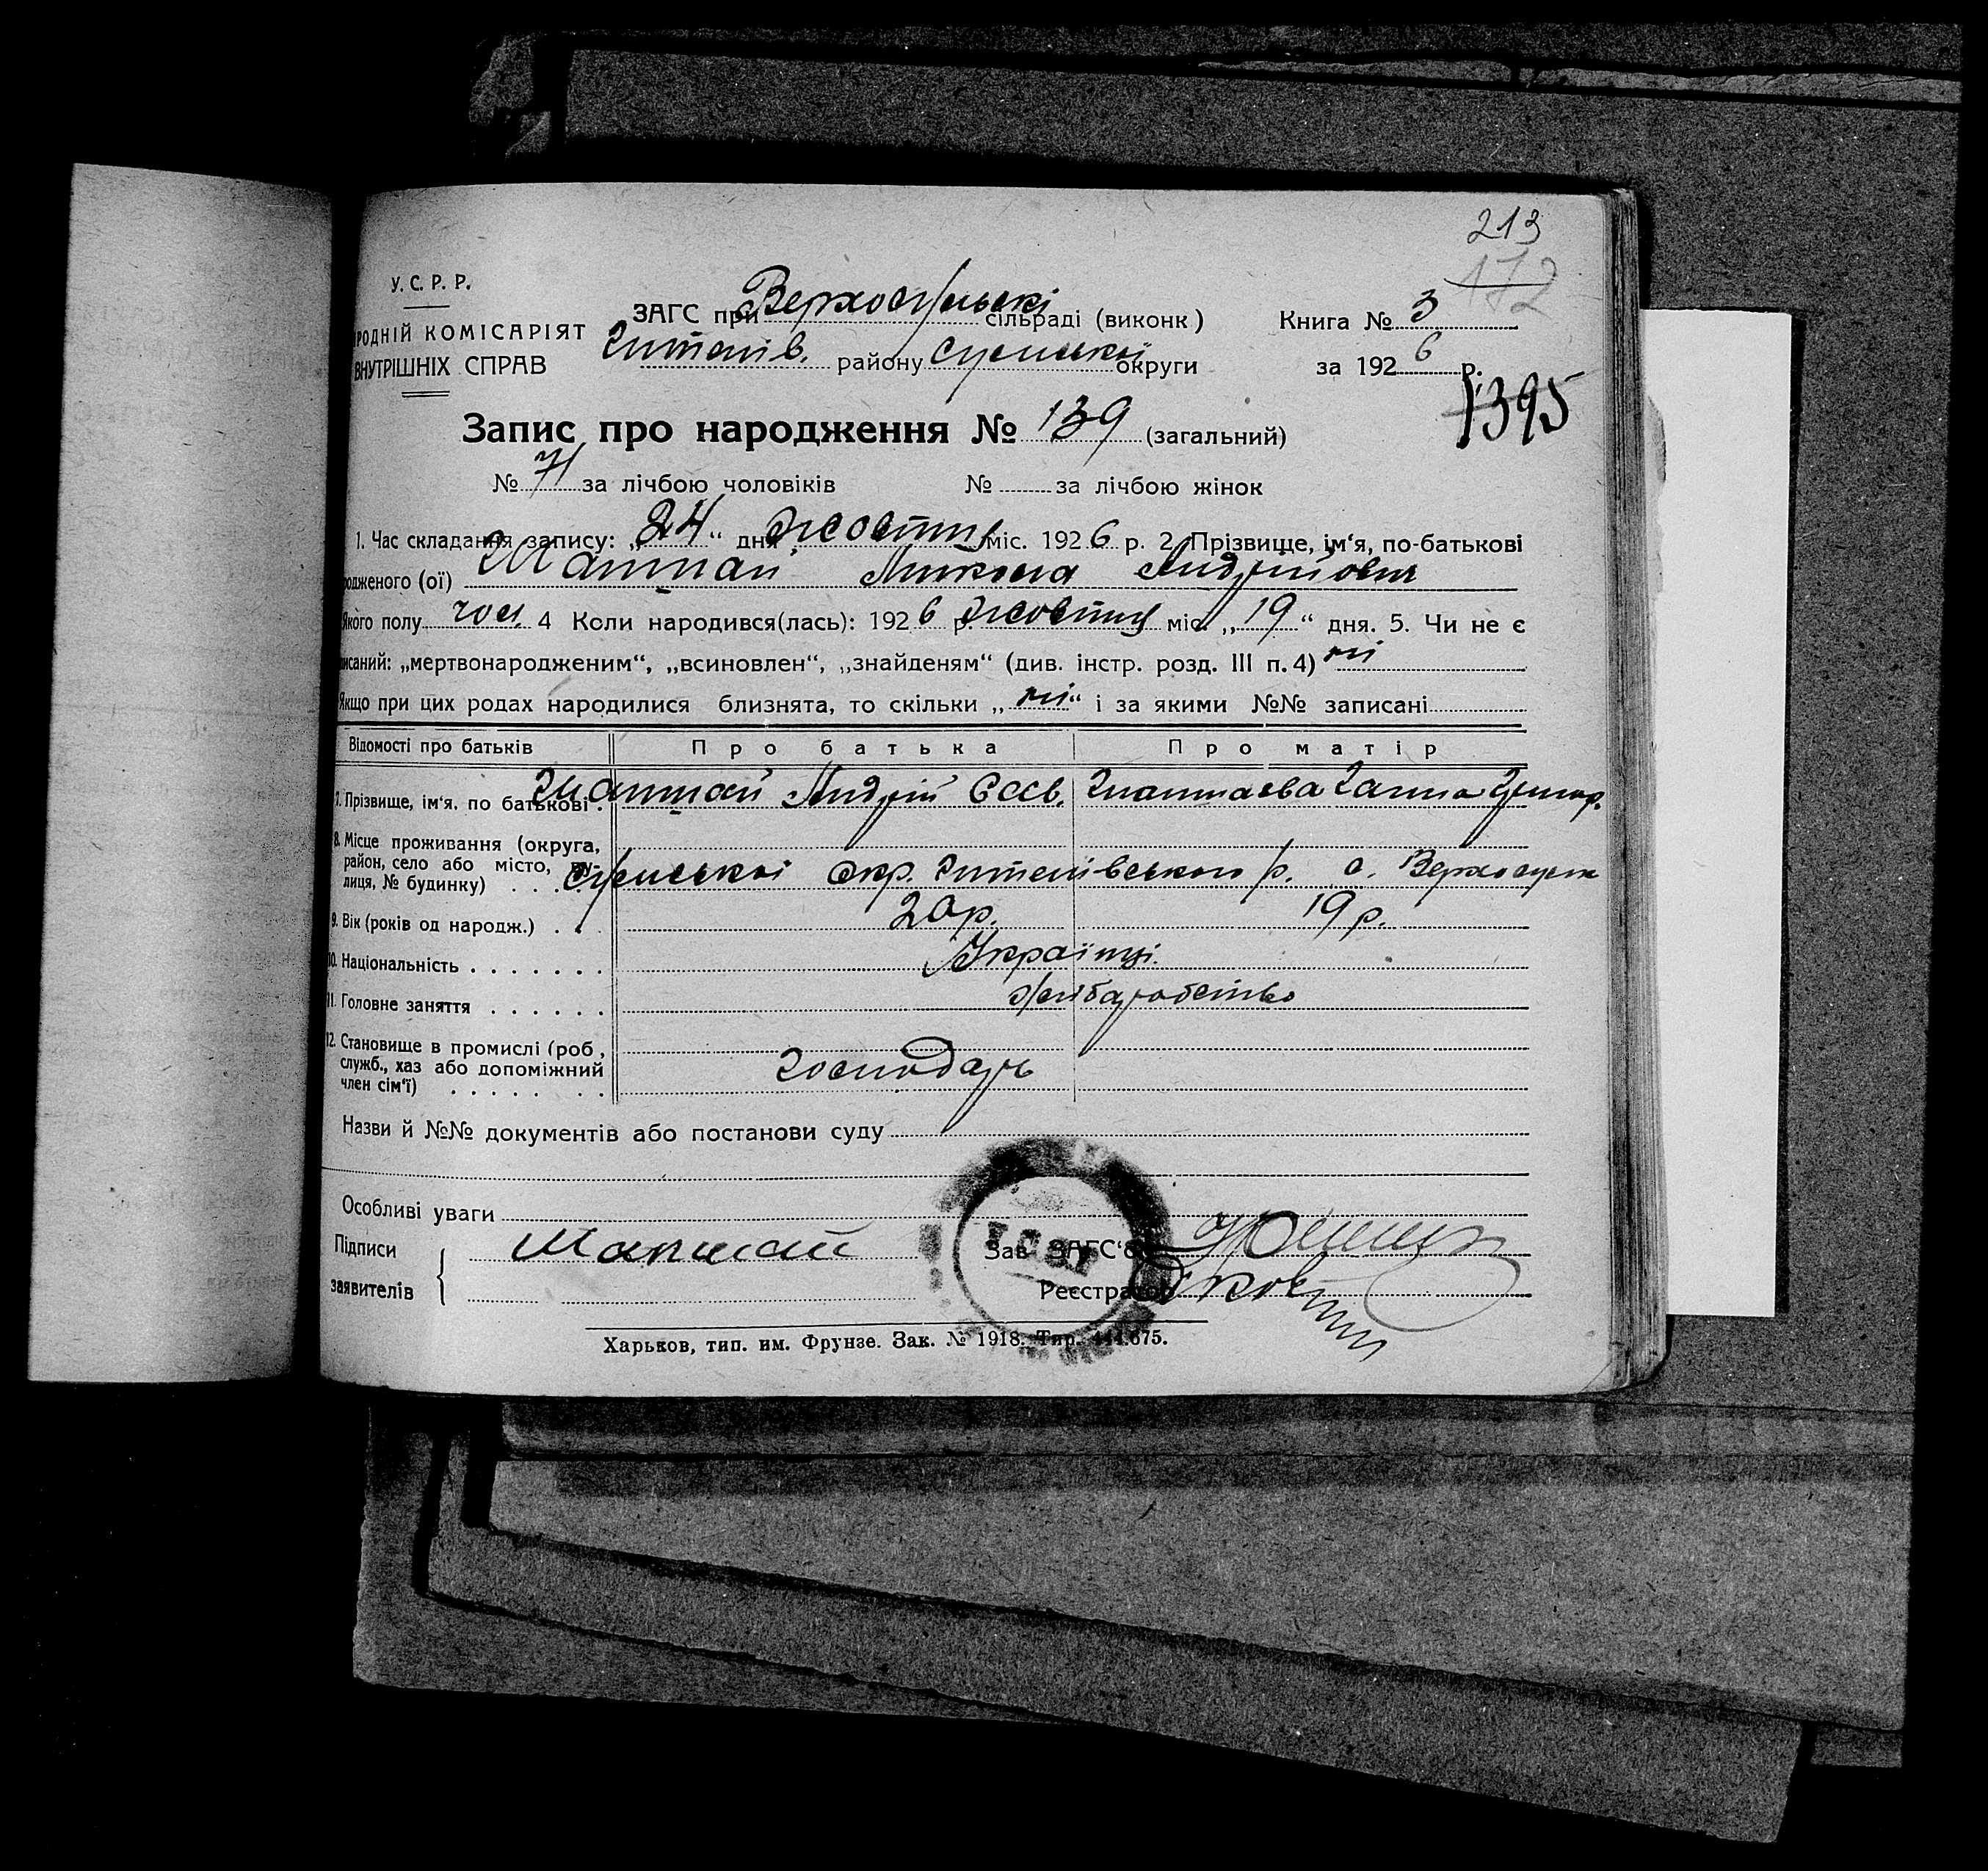 213
172
У. С. Р. Р.
РОДНІЙ КОМІСАРІЯТ
ВНУТРІШНІХ СПРАВ
ЗАГС при сільраді (виконк)
району Сумської округи
Книга № 3
за 1926 р.
1395
Запис про народження № 139 (загальний)
№ 71 за лічбою чоловіків № за лічбою жінок
1. Час складання запису: „24“ дня жовтня міс. 1926 р. 2. Прізвище, ім‘я, по-батькові
родженого (ої) Шапшай Микола Андрійович
Якого полу чол. 4 Коли народився(лась): 1926 р. жовтня міс. „19“ дня. 5. Чи не є
писаний: „мертвонародженим“, „всиновлен“, „знайденям“ (див. інстр. розд. III п. 4) ні
Якщо при цих родах народилися близнята, то скільки „ні“ і за якими №№ записані
Відомості про батьків Про батька Про матір
7. Прізвище, ім‘я, по батькові Шапшай Андрій Шапшаєва Ганна
8. Місце проживання (округа,
район, село або місто, ву-
лиця, № будинку) Сумської окр. р. с.
9. Вік (років од народж.) 20 р. 19 р.
10. Національність Українці
11. Головне заняття Хліборобство
12. Становище в промислі (роб.,
служб., хаз або допоміжний
член сім‘ї) Господарь
Назви й №№ документів або постанови суду
Особливі уваги
Підписи
заявителів
Шапшай
Зав. ЗАГС‘ом
Реєстратор
Харьков, тип. им. Фрунзе. Зак. № 1918. Тир. 444.675.